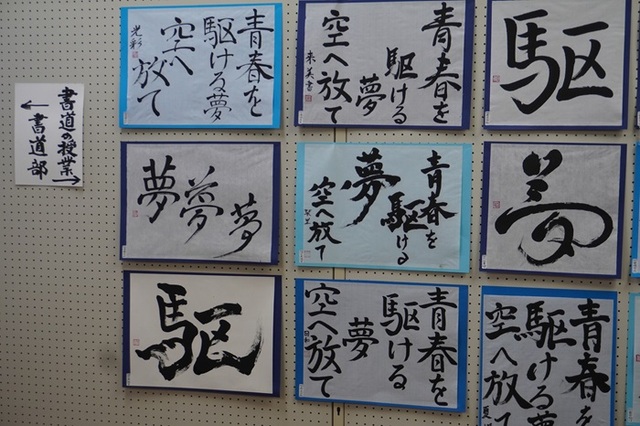 書道の授業→
←書道部
青春を
駆ける夢
空へ
放て
光彩
青春を
駆ける
夢
空へ放て
来美書
駆
夢
夢
夢
青春を
駆ける
夢
空へ放て
夢
駆
青春を
駆ける
夢
空へ放て
青春を
駆ける夢
空へ放て